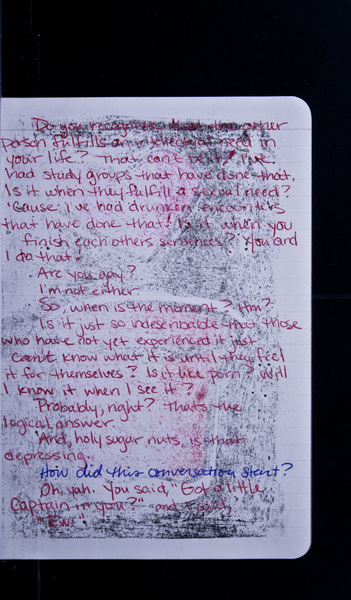 Do you recognize that the other
person fulfills an intellectual need in
your life? That can't be it. I've
had study groups that have done that.
Is it when they fulfill a sexual need?
'Cause I've had drunken encounters
that have done that! Is it when you
finish each others sentences? You and
I do that.
Are you gay?
I'm not either.
So, when is the moment? Hm?
Is it just so indescribable that those
who have not yet experienced it just
can't know what it is until they feel
it for themselves? Is it like porn? Will
I know it when I see it?
Probably, right? Thats the
logical answer.
And, holy sugar nuts, is that
depressing.
How did this conversation start?
Oh, yah. You said, "Got a little
Captain in you?" and I said,
"Ew."